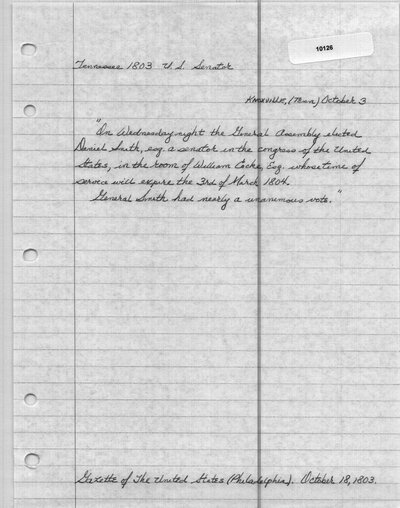 10126
Tennessee 1803 U.S. Senator
Knoxville, (Tenn) October 3
"On Wednesday night the General Assembly elected
Daniel Smith, esq. a senator in the congress of the United
States, in the room of William Cocke, Esq. whose time of
service will expire the 3rd of March 1804.
General Smith had nearly a unanimous vote."
Gazette of The United States (Philadelphia). October 18, 1803.